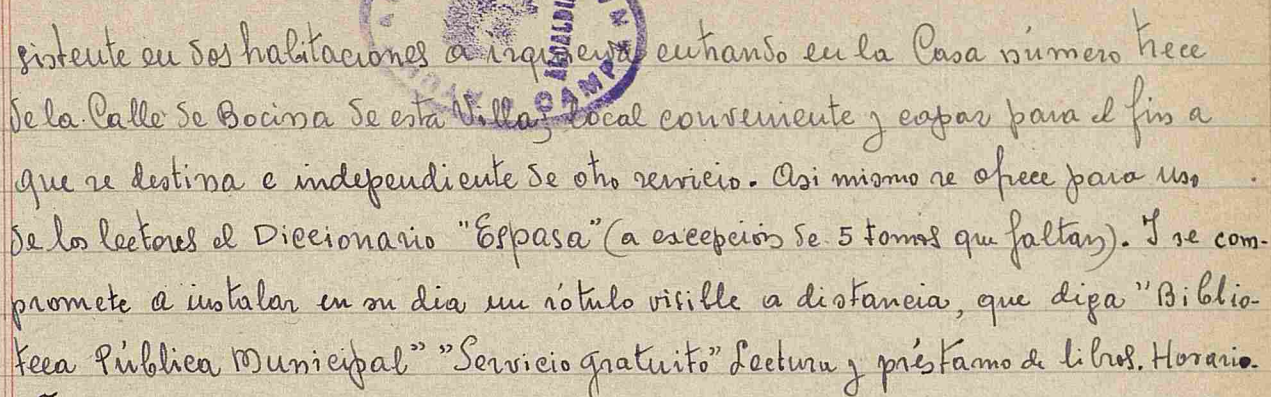 sistente en dos habitaciones a izquierda entrando en la Casa número trece
de la Calle de Bocina de esta Villa, local conveniente y capaz para el fin a
que se destina e independiente de otro servicio. Asi mismo se ofrece para uso
de los lectores el Diccionario "Espasa" (a excepción de 5 tomos que faltan). Y se com-
promete a instalar en su dia un rótulo visible a distancia, que diga "Biblio-
teca Pública Municipal" "Servicio gratuito" Lectura y préstamo de libros. Horario.
ALCALDIA
CAMP